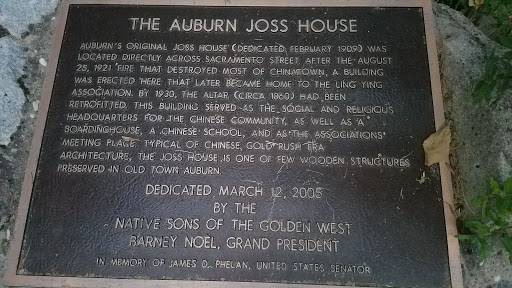 THE AUBURN JOSS HOUSE
AUBURN'S ORIGINAL JOSS HOUSE (DEDICATED FEBRUARY 1909) WAS
LOCATED DIRECTLY ACROSS SACRAMENTO STREET. AFTER THE AUGUST
25, 1921 FIRE THAT DESTROYED MOST OF CHINATOWN, A BUILDING
WAS ERECTED HERE THAT LATER BECAME HOME TO THE LING YING
ASSOCIATION. BY 1930, THE ALTAR (CIRCA 1860) HAD BEEN
RETROFITTED. THIS BUILDING SERVED AS THE SOCIAL AND RELIGIOUS
HEADQUARTERS FOR THE CHINESE COMMUNITY, AS WELL AS A
BOARDINGHOUSE, A CHINESE SCHOOL, AND AS THE ASSOCIATIONS'
MEETING PLACE. TYPICAL OF CHINESE, GOLD RUSH ERA
ARCHITECTURE, THE JOSS HOUSE IS ONE OF FEW WOODEN STRUCTURES
PRESERVED IN OLD TOWN AUBURN.
DEDICATED MARCH 12, 2005
BY THE
NATIVE SONS OF THE GOLDEN WEST
BARNEY NOEL, GRAND PRESIDENT
IN MEMORY OF JAMES D. PHELAN, UNITED STATES SENATOR